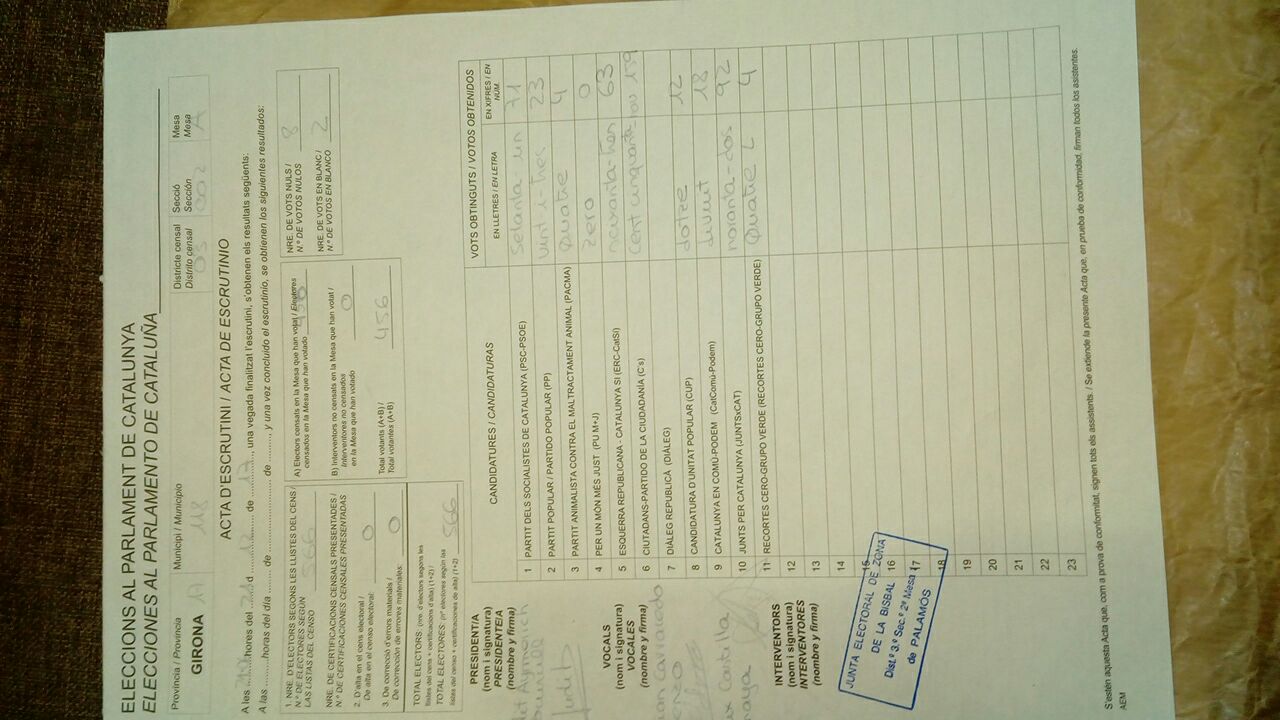 ELECCIONS AL PARLAMENT DE CATALUNYA
ELECCIONES AL PARLAMENTO DE CATALUÑA
Província / Provincia
GIRONA 17
Municipi / Municipio
118
Districte censal
Distrito censal
03
Secció
Sección
002
Mesa
Mesa
A
ACTA D'ESCRUTINI / ACTA DE ESCRUTINIO
A les ............hores del 21 d 12 de 17, una vegada finalitzat l'escrutini, s'obtenen els resultats següents:
A las ............horas del día ............ de ............ de ............, y una vez concluido el escrutinio, se obtienen los siguientes resultados:
1. NRE. D'ELECTORS SEGONS LES LLISTES DEL CENS /
N.º DE ELECTORES SEGÚN
LAS LISTAS DEL CENSO 566
NRE. DE CERTIFICACIONS CENSALS PRESENTADES /
N.º DE CERTIFICACIONES CENSALES PRESENTADAS
2. D'alta en el cens electoral /
De alta en el censo electoral: 0
3. De correcció d'errors materials /
De corrección de errores materiales: 0
TOTAL ELECTORS: (nre. d'electors segons les
llistes del cens + certificacions d'alta) (1+2) /
TOTAL ELECTORES: (nº electores según las
listas del censo + certificaciones de alta) (1+2) 566
A) Electors censats en la Mesa que han votat / Electores
censados en la Mesa que han votado 456
B) Interventors no censats en la Mesa que han votat /
Interventores no censados
en la Mesa que han votado 0
Total votants (A+B) /
Total votantes (A+B) 456
NRE. DE VOTS NULS /
N.º DE VOTOS NULOS 8
NRE. DE VOTS EN BLANC /
N.º DE VOTOS EN BLANCO 2
CANDIDATURES / CANDIDATURAS
VOTS OBTINGUTS / VOTOS OBTENIDOS
EN LLETRES / EN LETRA
EN XIFRES / EN NÚM.
1 PARTIT DELS SOCIALISTES DE CATALUNYA (PSC-PSOE) setanta-un 71
2 PARTIT POPULAR / PARTIDO POPULAR (PP) vint-i-tres 23
3 PARTIT ANIMALISTA CONTRA EL MALTRACTAMENT ANIMAL (PACMA) Quatre 4
4 PER UN MÓN MÉS JUST (PU M+J) zero 0
5 ESQUERRA REPUBLICANA - CATALUNYA SÍ (ERC-CatSí) 63
6 CIUTADANS-PARTIDO DE LA CIUDADANÍA (C's) cent cinquanta-nou 159
7 DIÀLEG REPUBLICÀ (DIÀLEG)
8 CANDIDATURA D'UNITAT POPULAR (CUP) dotze 12
9 CATALUNYA EN COMÚ-PODEM (CatComú-Podem) divuit 18
10 JUNTS PER CATALUNYA (JUNTSxCAT) noranta-dos 92
11 RECORTES CERO-GRUPO VERDE (RECORTES CERO-GRUPO VERDE) Quatre 4
12
13
14
15
16
17
18
19
20
21
22
23
PRESIDENTIA
(nom i signatura)
PRESIDENTE/A
(nombre y firma)
Aymerich
Judit
VOCALS
(nom i signatura)
VOCALES
(nombre y firma)
INTERVENTORS
(nom i signatura)
INTERVENTORES
(nombre y firma)
JUNTA ELECTORAL DE ZONA
DE LA BISBAL
Dist.º 3.º Sec.º 2ª Mesa A
de PALAMÓS
S'estén aquesta Acta que, com a prova de conformitat, signen tots els assistents. / Se extiende la presente Acta que, en prueba de conformidad, firman todos los asistentes.
AEM